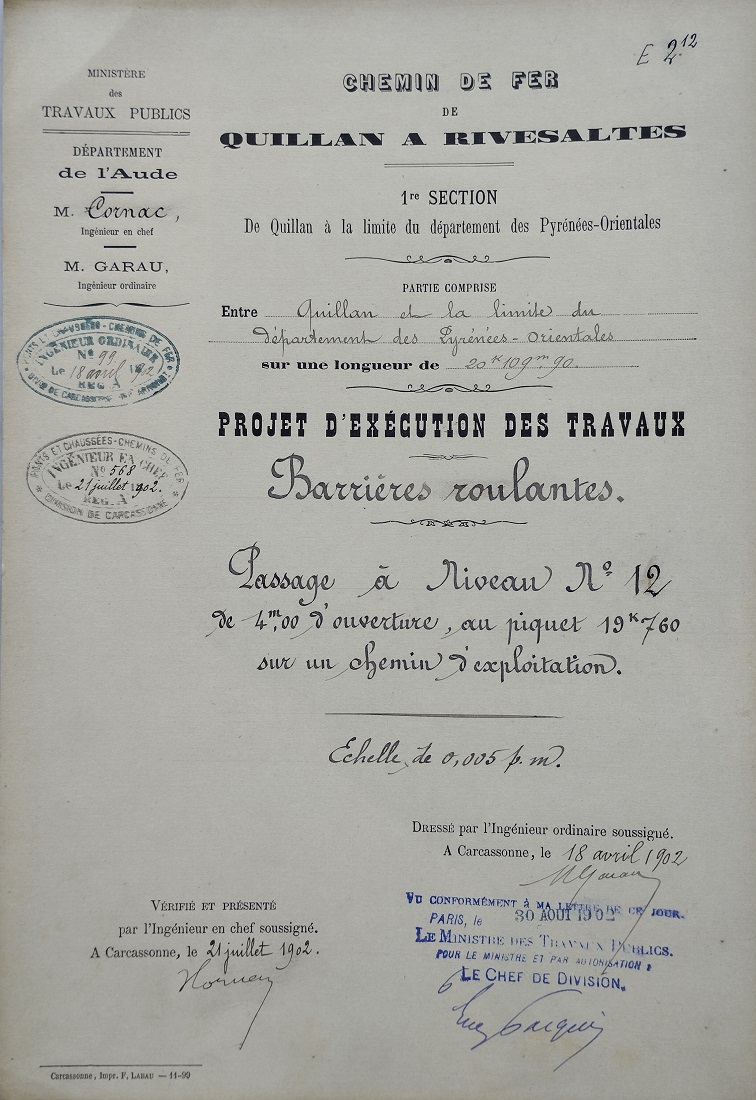 E 2 12
MINISTÈRE
des
TRAVAUX PUBLICS
DÉPARTEMENT
de l'Aude
M. Cornac,
Ingénieur en chef
M. GARAU,
Ingénieur ordinaire
PONTS ET CHAUSSÉES - CHEMINS DE FER
INGÉNIEUR ORDINAIRE
N° 99
Le 18 avril 1902
REG. A
PONTS ET CHAUSSÉES - CHEMINS DE FER
INGÉNIEUR EN CHEF
N° 568
Le 21 juillet 1902.
REG. A
DIVISION DE CARCASSONNE
CHEMIN DE FER
DE
QUILLAN A RIVESALTES
1re SECTION
De Quillan à la limite du département des Pyrénées-Orientales
PARTIE COMPRISE
Entre Quillan et la limite du
département des Pyrénées-Orientales
sur une longueur de 20k 109m 90
PROJET D'EXÉCUTION DES TRAVAUX
Barrières roulantes.
Passage à Niveau N° 12
de 4m,00 d'ouverture, au piquet 19k 760
sur un chemin d'exploitation.
Echelle de 0,005 p. m.
DRESSÉ par l'Ingénieur ordinaire soussigné.
A Carcassonne, le 18 avril 1902
VU CONFORMÉMENT À MA LETTRE DE CE JOUR.
PARIS, le 30 AOUT 1902
LE MINISTRE DES TRAVAUX PUBLICS.
POUR LE MINISTRE ET PAR AUTORISATION :
LE CHEF DE DIVISION.
VÉRIFIÉ ET PRÉSENTÉ
par l'Ingénieur en chef soussigné.
A Carcassonne, le 21 juillet 1902.
Carcassonne, Impr. F. LABAU — 11-99